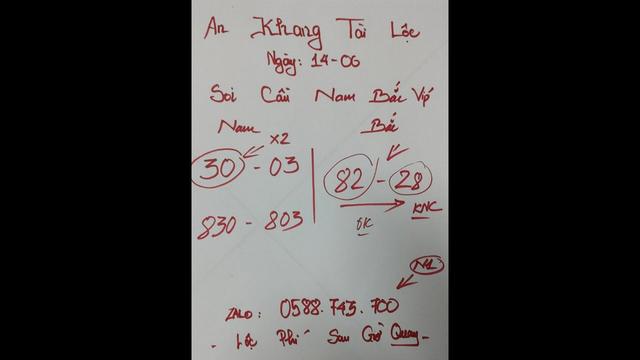 An Khang Tài Lộc
Ngày: 14-06
Soi Cầu Nam Bắc Víp
Nam
Bắc
x2
30 - 03
82 - 28
KNC
ĐK
830 - 803
N1
ZALO: 0588.743.700
- Lộc Phí Sau Giờ Quay -